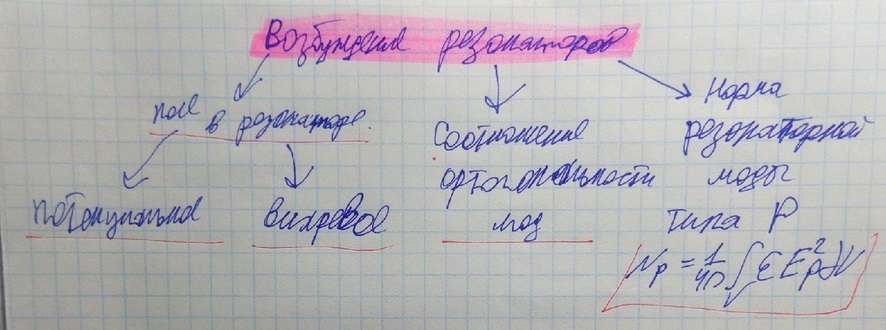 Возбуждение резонаторов
поле
в резонаторе.
потенциальное
вихревое
Соотношение
ортогональности
мод
Норма
резонаторной
моды
типа P
Nₚ = 1/4π ∫ εEₚ² dV